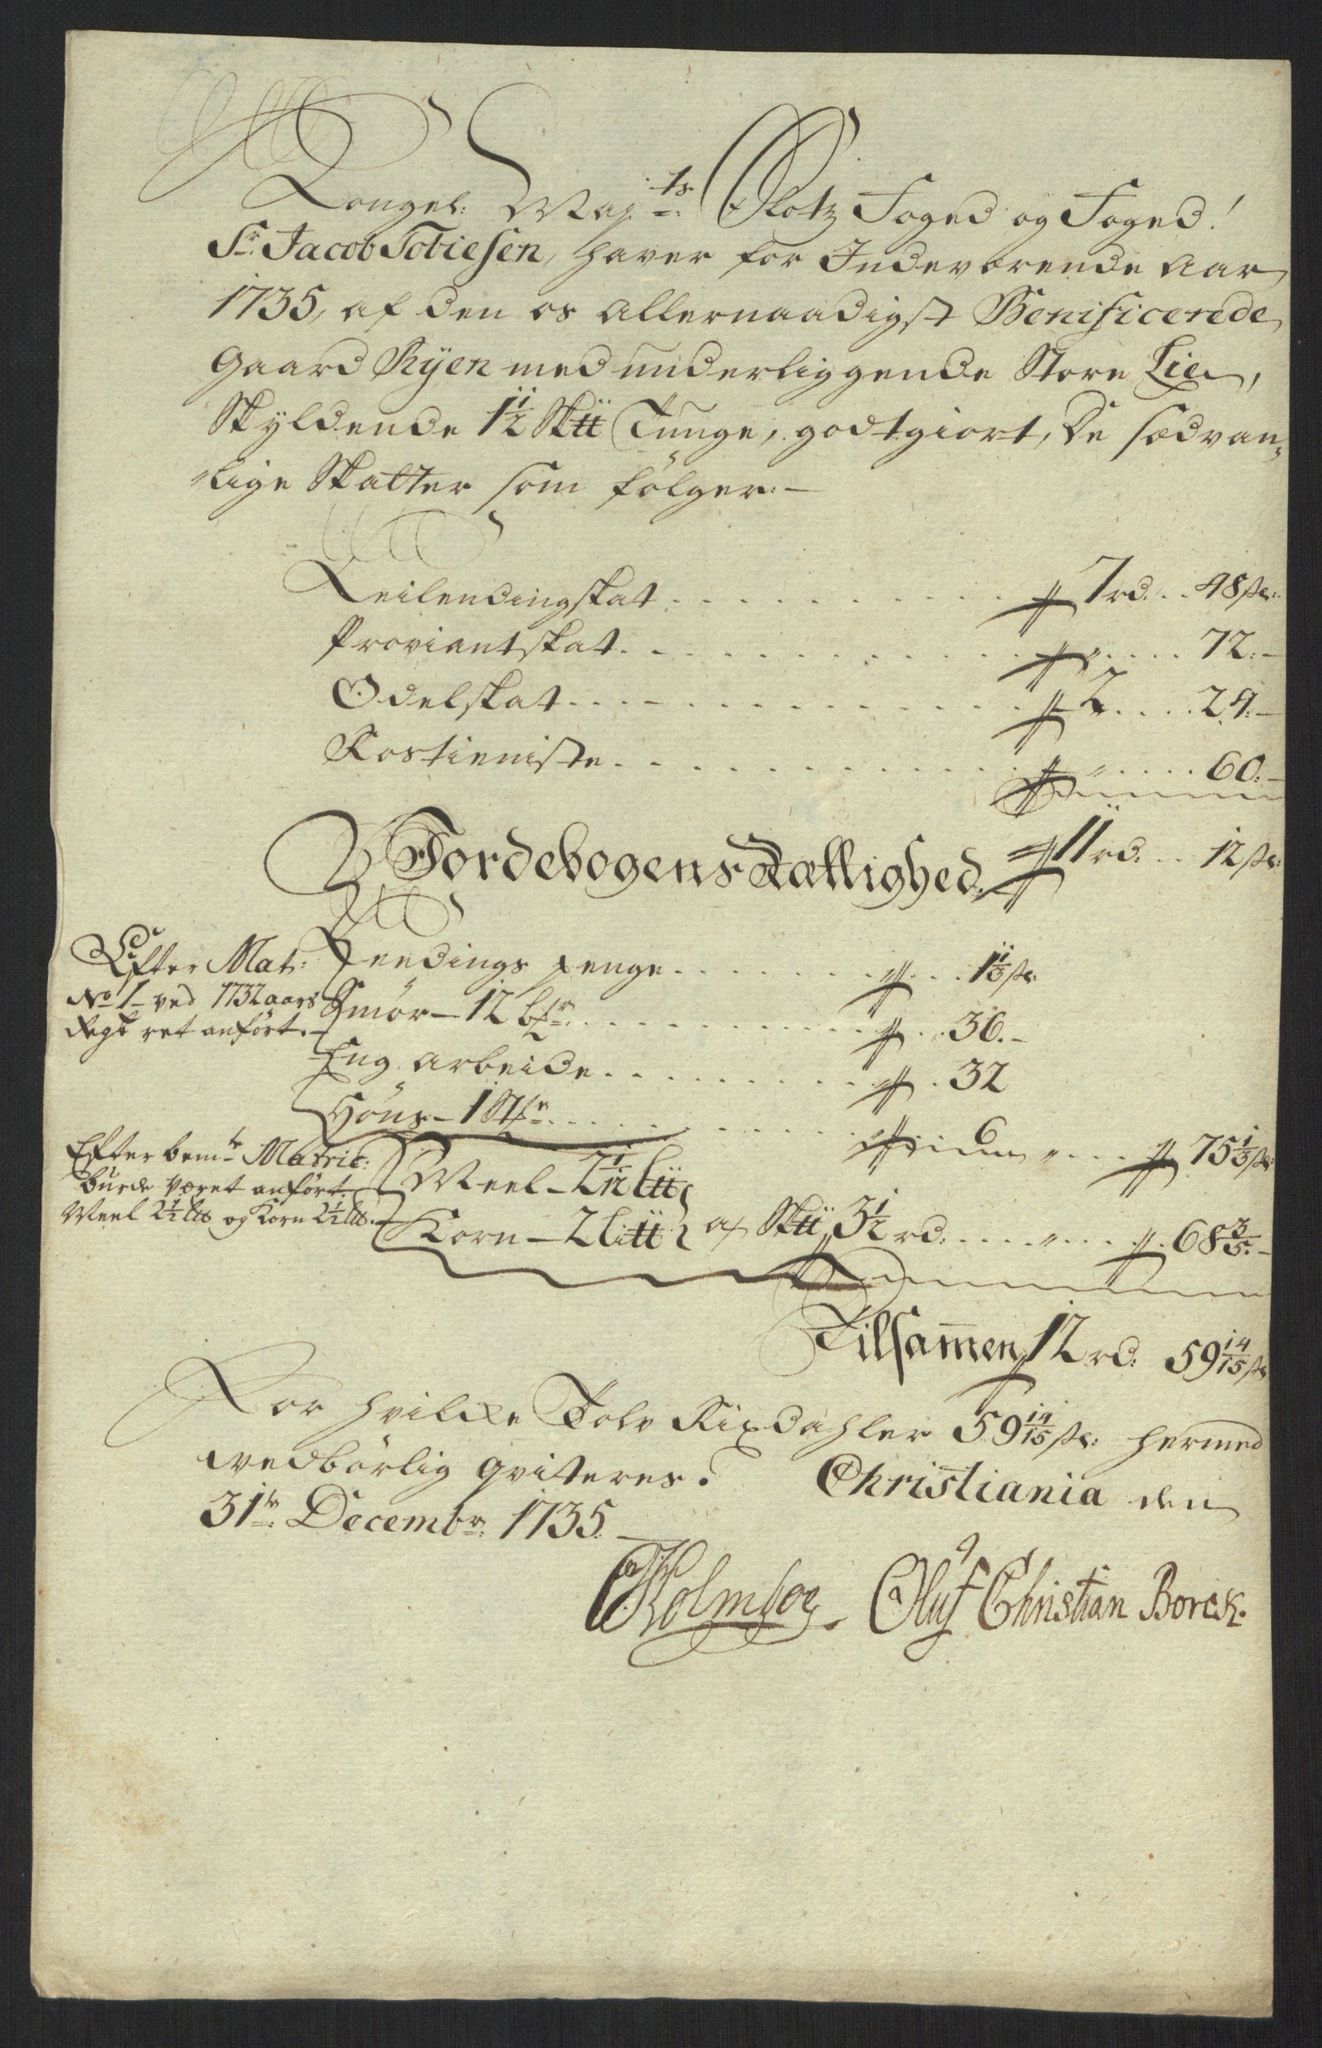 Kongel: Maj:ts Slotz Foged og Foged!
Sr. Jacob Tobiesen, haver for Indeværende Aar
1735, af den os Allernaadigst Benificerede
Gaard Ryen med underliggende Store Lie,
Skyldende 1 1/2 Sk℔ Tunge, godtgiort, De sædvan,
„lige Skatter som følger:—
Leilendingskat . . . 7 rd. . . 48 sk:
Proviantskat . . . „ . . . 72:—
Odelskat . . . 2 . . . 24:—
Rostieniste . . . „ . . . 60:—
11 rd. . . 12 sk:
Jordebogens Rættighed.
Efter Mat:
No 1 ved 1732 aars
Regk ret anført.
Leedings penge . . . 1 1/3 sk:
Smør — 12 . . . 36.—
Eng arbeide . . . 32
Høns — 1 St. . . . 6 „ . . . 75 1/3 sk:
Efter bemte Matric:
burde været anført.
Meel 2 1/2 L℔ og Korn 2 1/2 L℔.
Meel — 2 1/12 L℔
Korn — 2 Li℔ af Sk℔ 3 1/2 rd. . . „ . . 68 3/5.—
Tilsam̄en 12 rd: 59 14/15 sk
For hvilke Tolv Rixdahler 59 14/15 sk: hermed
vedbørlig qviteres. Christiania den
31te Decembr: 1735.
Holmboe. Oluf Christian Borck.